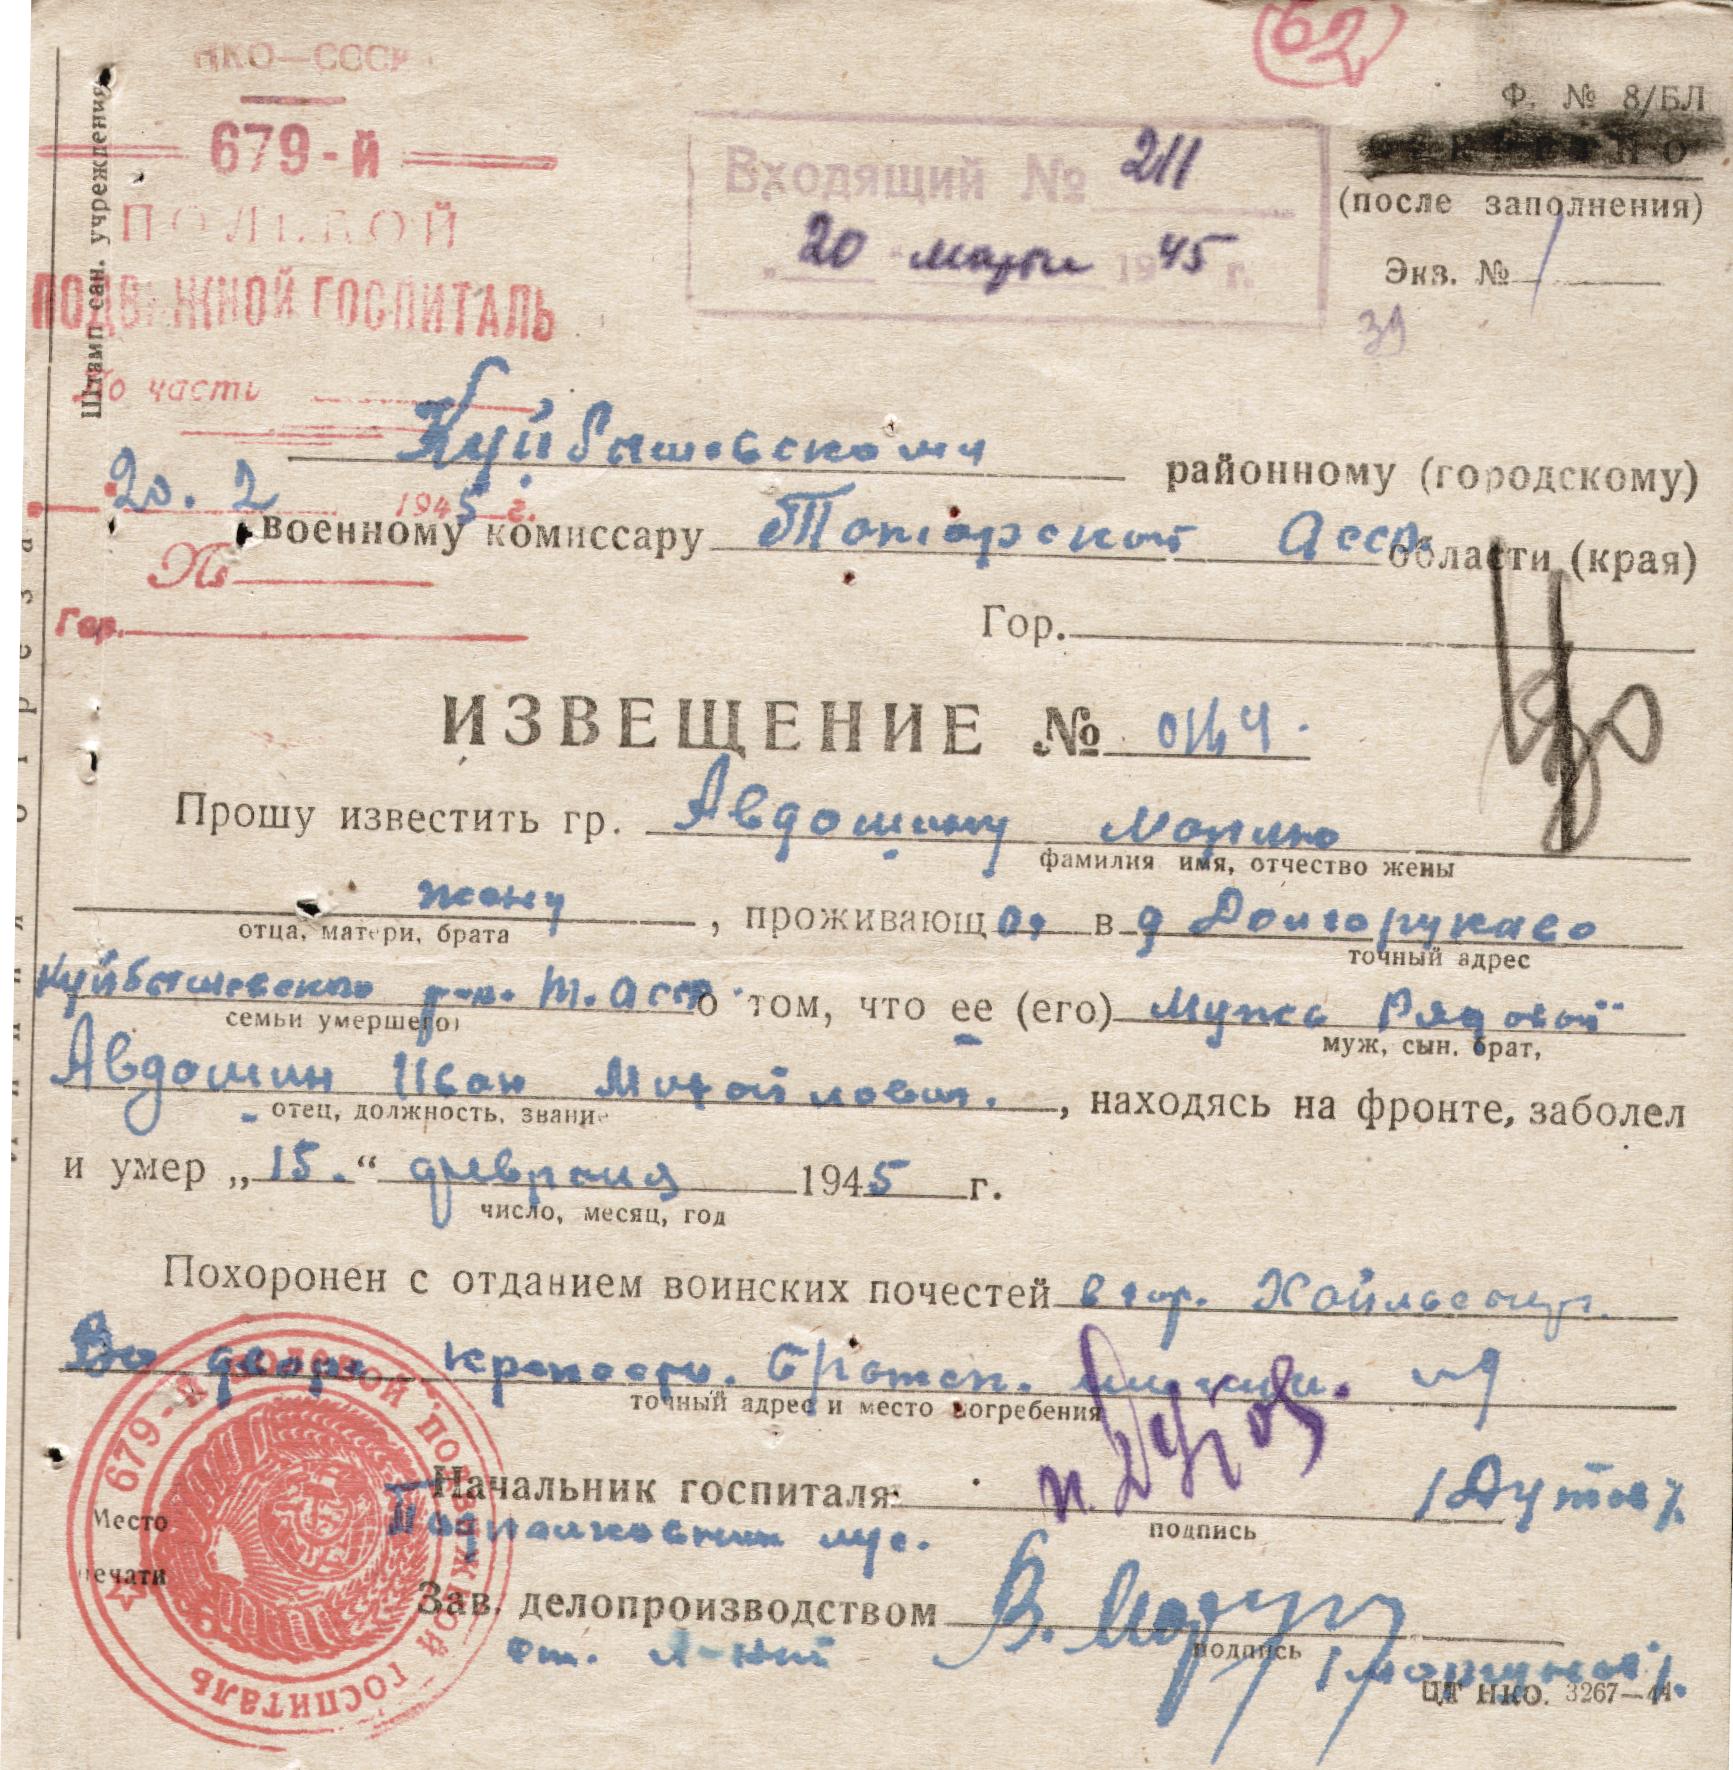 62
Ф. № 8/БЛ
СЕКРЕТНО
(после заполнения)
Экз. № 1
39
НКО—СССР
679-й
ПОЛЕВОЙ
ПОДВИЖНОЙ ГОСПИТАЛЬ
По части
20. 2 1945 г.
№
Гор.
Штамп сан. учреждения
Входящий № 211
„20" марта 1945 г.
Куйбышевскому районному (городскому)
военному комиссару Татарской АССР области (края)
Гор.
ИЗВЕЩЕНИЕ №
Прошу известить гр. Авдошину Марию
фамилия имя, отчество жены
жену, проживающ ая в д Долгоруково
отца, матери, брата
точный адрес
Куйбышевского р-на. Т. АССР о том, что ее (его) Мужь Рядовой
семьи умершего)
муж, сын, брат,
Авдошин Иван Михайлович., находясь на фронте, заболел
отец, должность, звание
и умер „15.“ февраля 1945 г.
число, месяц, год
Похоронен с отданием воинских почестей в гор. Хайльсберг.
Во дворе крепости. Братск. могила.
точный адрес и место погребения
Начальник госпиталя: /Дутов/.
подпись
Подполковник м/с.
Зав. делопроизводством
подпись
ст. л-нт
Место
печати
679-Й ПОЛЕВОЙ ПОДВИЖНОЙ ГОСПИТАЛЬ
ЦТ НКО. 3267—44.